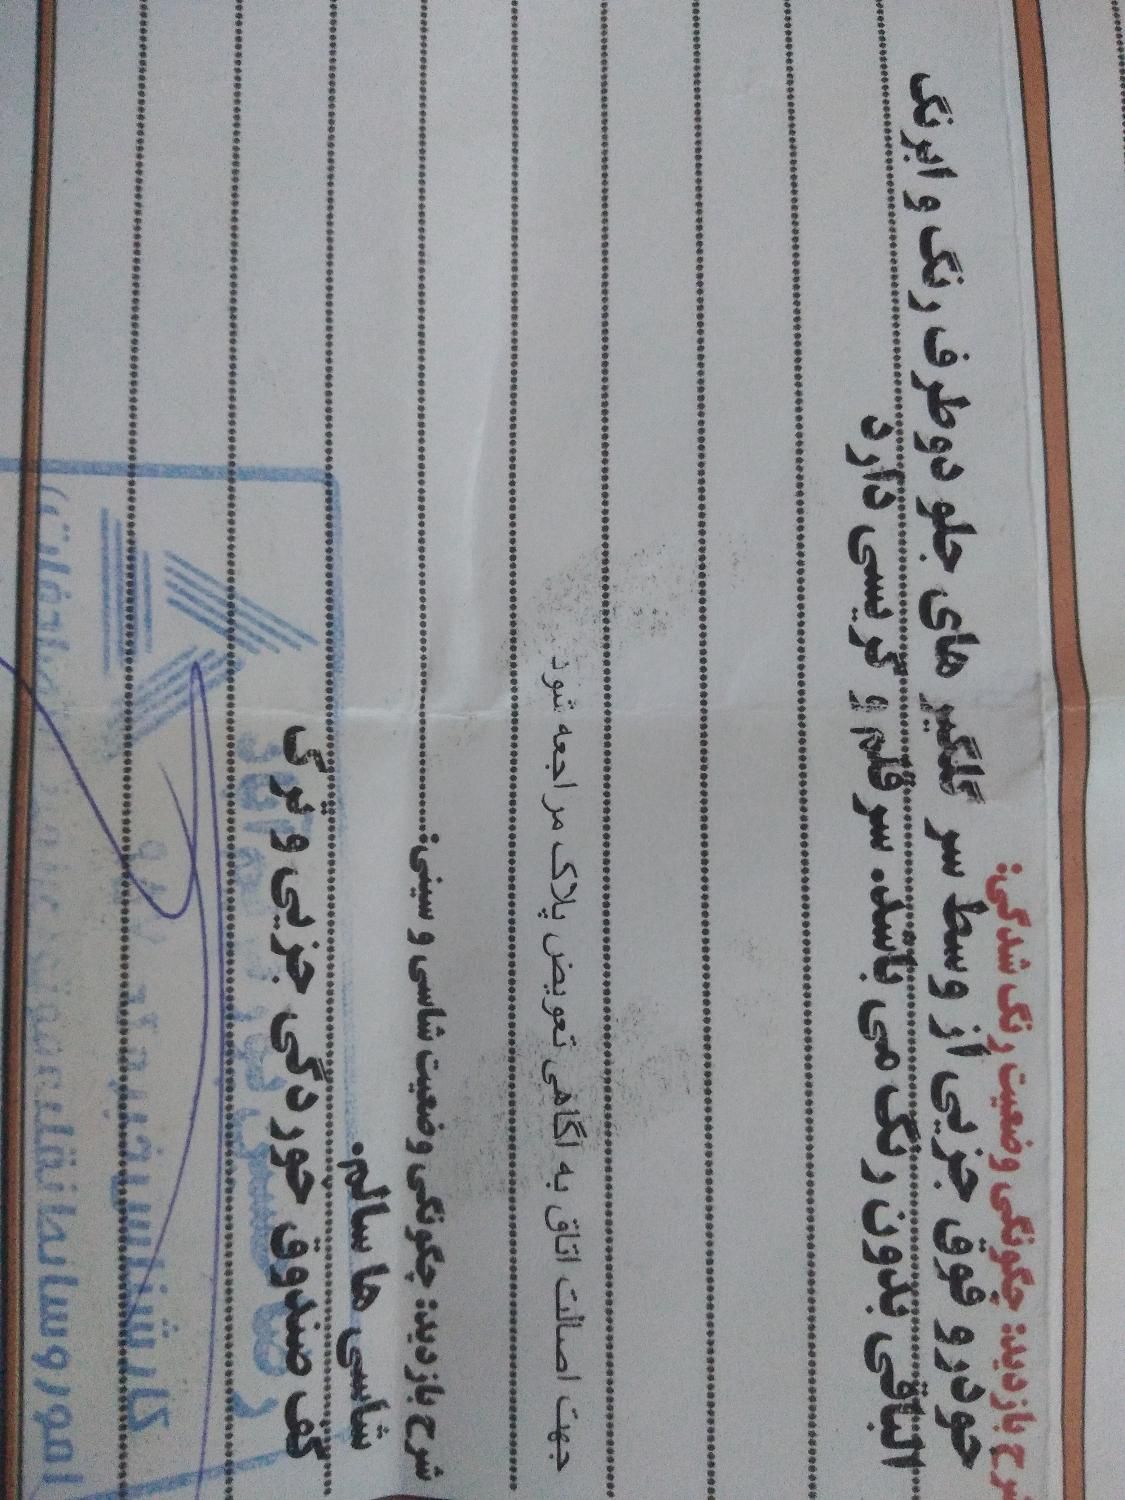 شرح بازدید: چگونگی وضعیت رنگ شدگی:
خودرو فوق جزیی از وسط سر گلگیر های جلو دوطرف رنگ و ابرنگ
الباقی بدون رنگ می باشد. سر قلم و گریسی دارد
جهت اصالت اتاق به آگاهی تعویض پلاک مراجعه شود
شرح بازدید: چگونگی وضعیت شاسی و سینی:
شاسی ها سالم.
کف صندوق خوردگی جزیی و ترگ
رضا
کارشناس رسمی
امور وسایط نقلیه